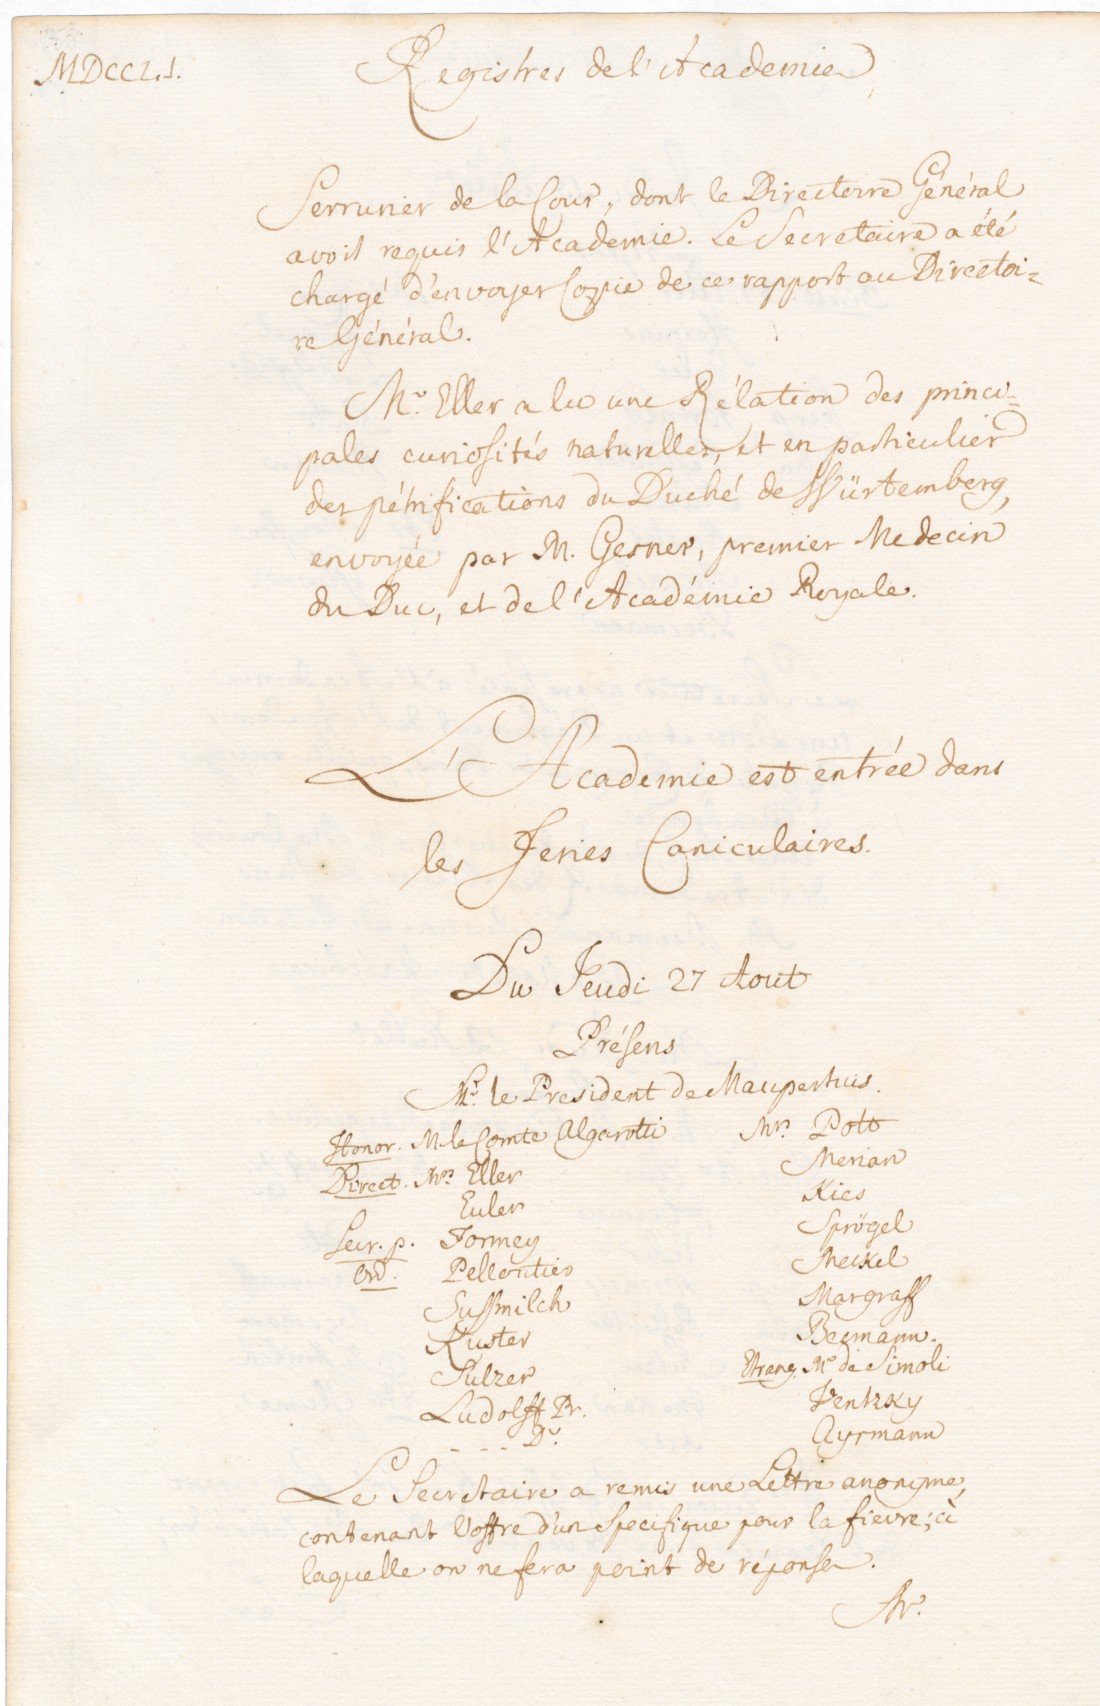 MDCCLI.
Registres de l'Academie
Serrurier de la Cour, dont le Directoire Général
avoit requis l'Academie. Le Secretaire a été
chargé d'envoyer Copie de ce rapport au Directoi=
re Général.
Mr. Eller a lu une Rélation des princi=
pales curiosités naturelles, et en particulier
des pétrifications du Duché de Würtemberg,
envoyée par M. Gesner, premier Medecin
du Duc, et de l'Académie Royale.
L'Academie est entrée dans
les Feries Caniculaires.
Du Jeudi 27 Aout
Présens
Mr. le President de Maupertuis.
Honor. M. le Comte Algarotti
Direct. Mrs. Eller
Euler
Secr. p. Formey
Ord. Pelloutier
Sussmilch
Kuster
Sulzer
Ludolff Pr.
- - - - Dr.
Mrs. Pott
Merian
Kies
Sprögel
Meckel
Margraff
Becmann.
Etrang. Mr. de Simoli
Ventzky
Ayrmann
Le Secretaire a remis une Lettre anonyme,
contenant l'offre d'un specifique pour la fievre; à
laquelle on ne fera point de réponse.
Mr.